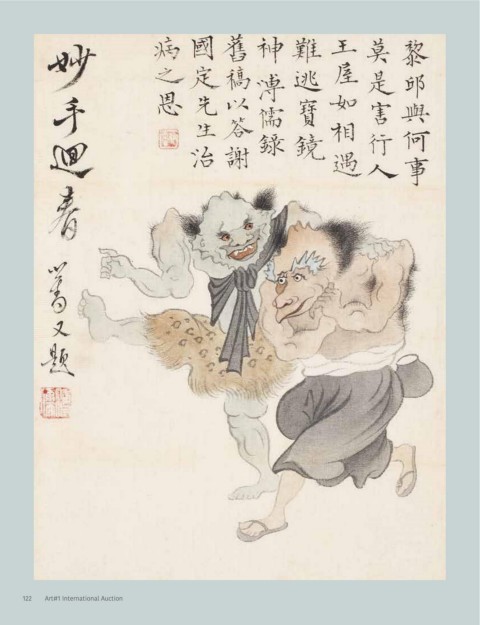 黎邱與何事
莫是害行人
王屋如相遇
難逃寶鏡
神溥儒錄
舊稿以答謝
國定先生治
病之恩
妙手迴春
心畬又題
122 Art#1 International Auction